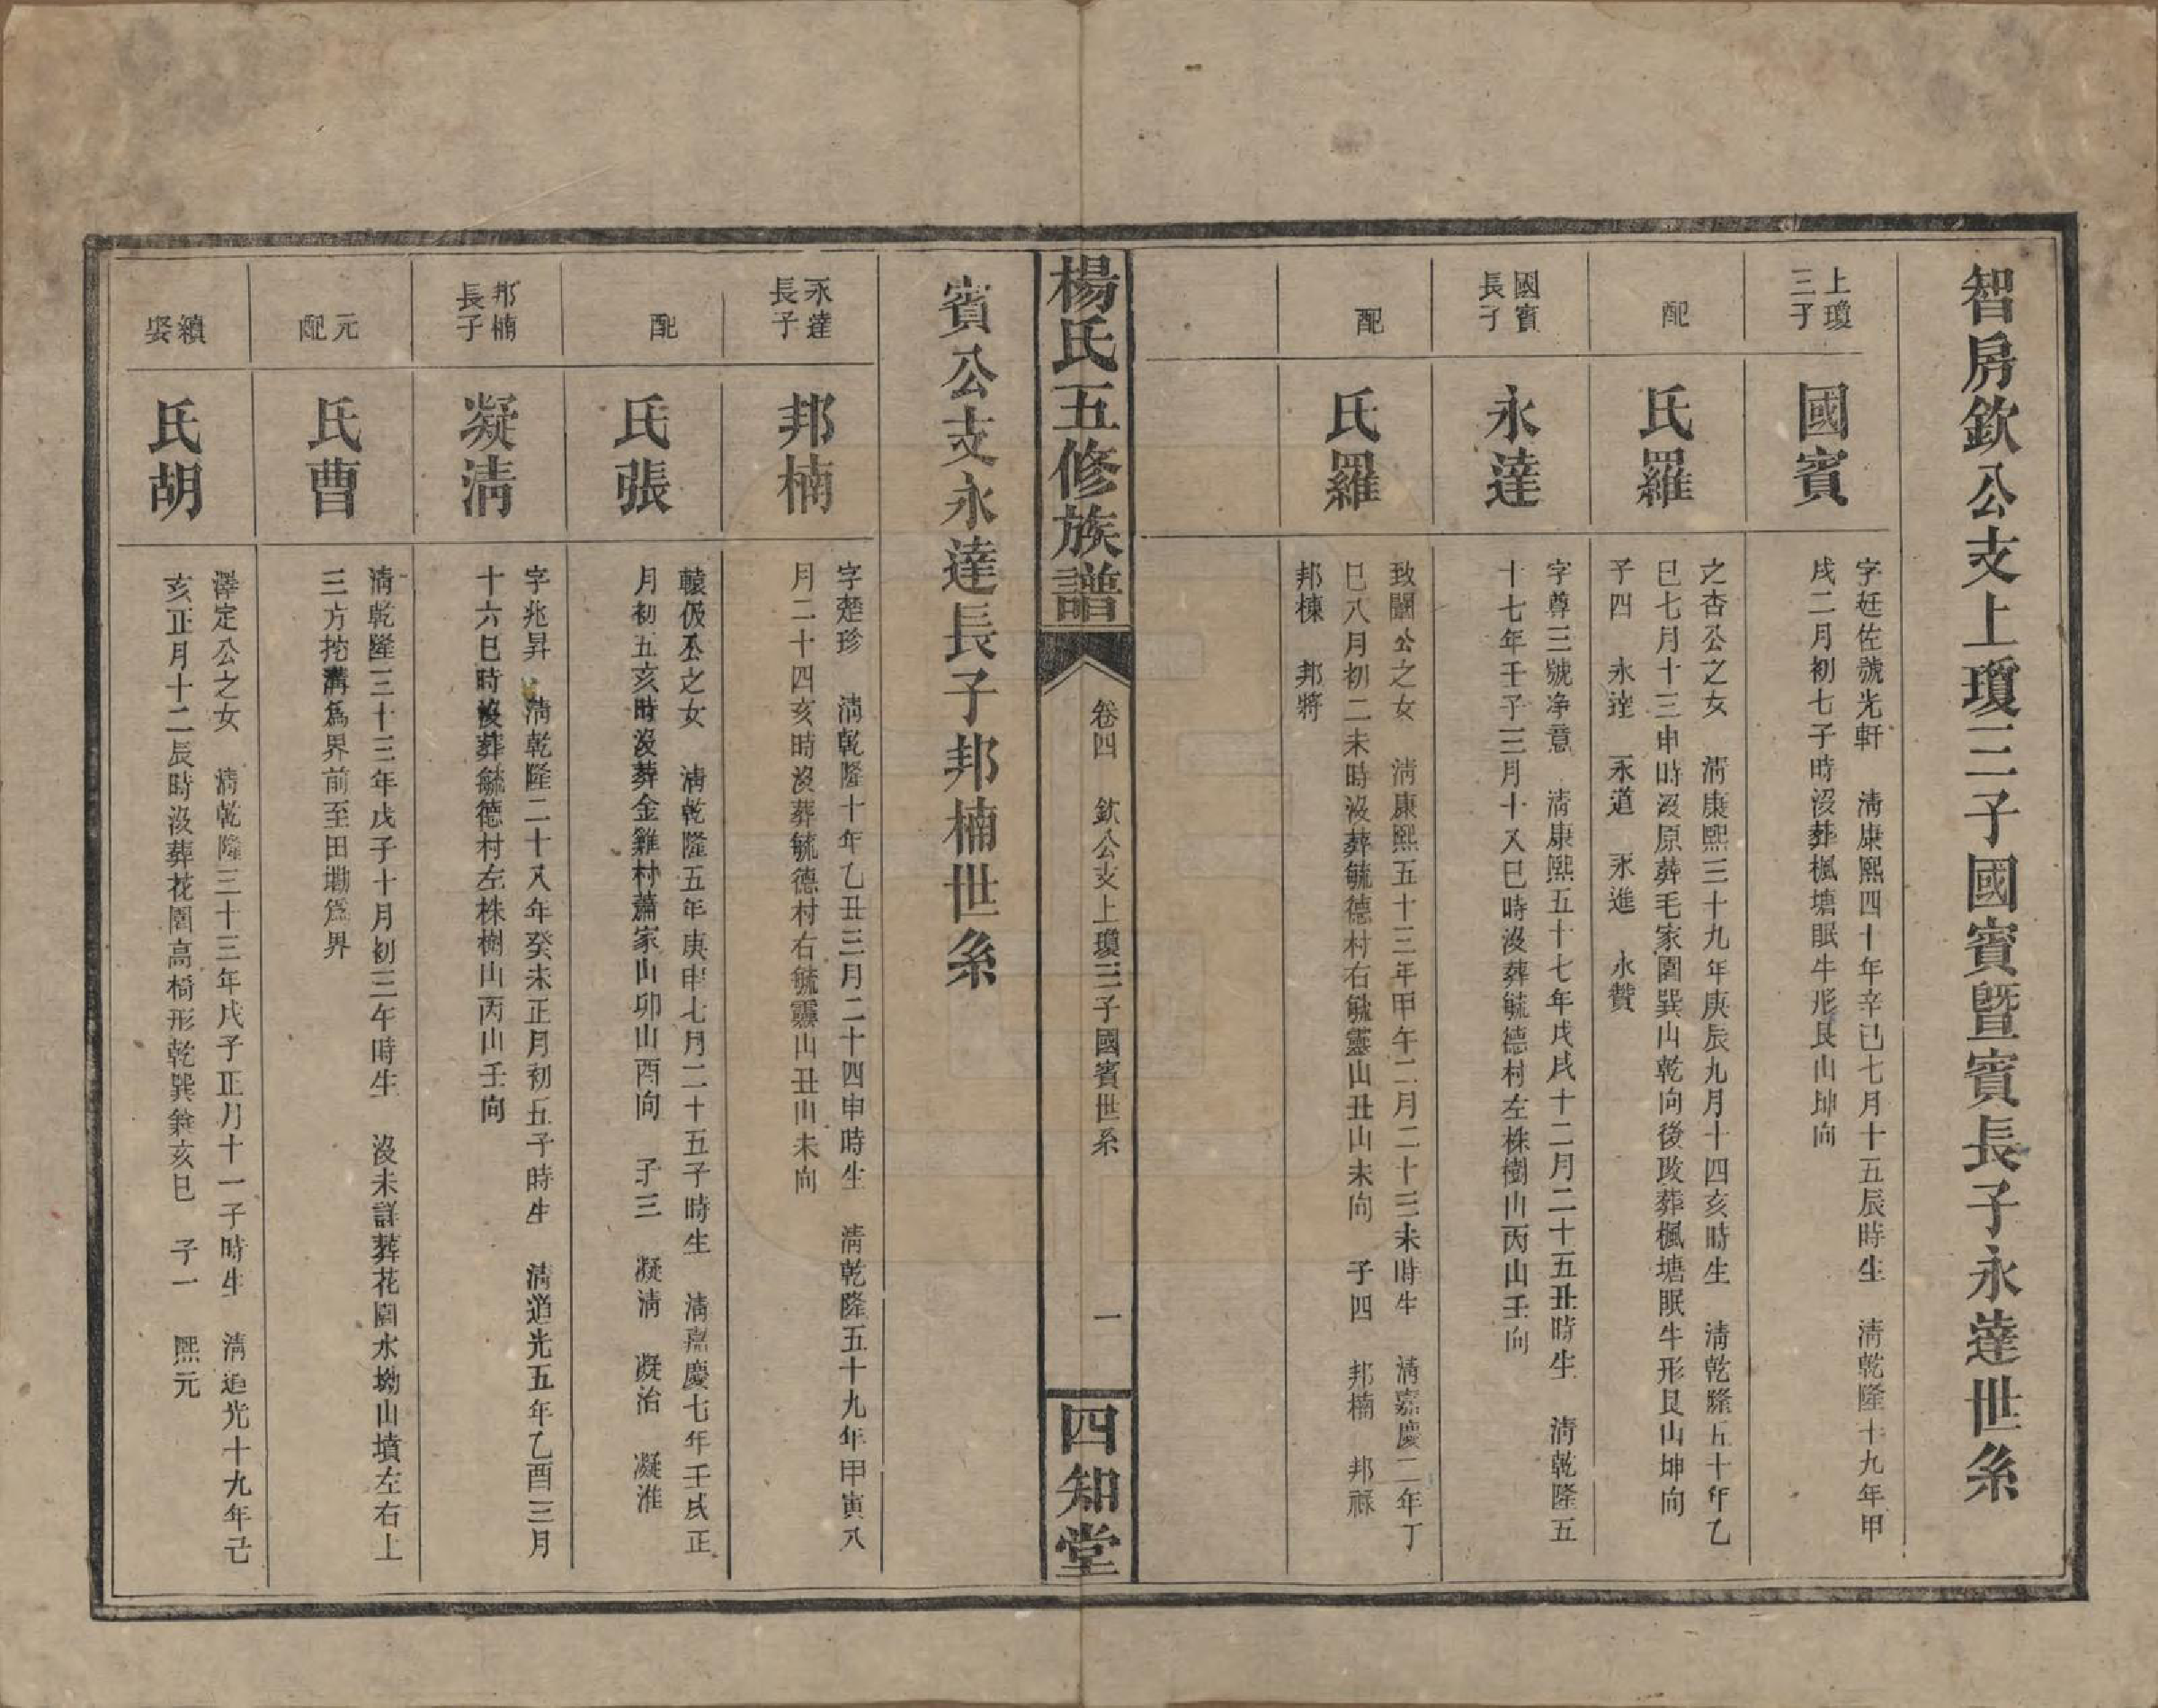 智房欽公支上瓊三子國賓曁賓長子永達世系
上瓊
三子
國賓
字廷佐號光軒　淸康熙四十年辛已七月十五辰時生　淸乾隆十九年甲
戌二月初七子時沒葬楓塘眠牛形艮山坤向
配
氏羅
之杏公之女　淸康熙三十九年庚辰九月十四亥時生　淸乾隆五十年乙
巳七月十三申時沒原葬毛家園巽山乾向後改葬楓塘眠牛形艮山坤向
子四　永達　永道　永進　永贊
國賓
長子
永達
字尊三號净意　淸康熙五十七年戊戌十二月二十五丑時生　淸乾隆五
十七年壬子三月十八巳時沒葬毓德村左株樹山丙山壬向
配
氏羅
致關公之女　淸康熙五十三年甲午二月二十三未時生　淸嘉慶二年丁
巳八月初二未時沒葬毓德村右毓靈山丑山未向　子四　邦楠　邦祿
邦棟　邦將
楊氏五修族譜
卷四　欽公支上瓊三子國賓世系
一
四知堂
賓公支永達長子邦楠世系
永達
長子
邦楠
字楚珍　淸乾隆十年乙丑三月二十四申時生　淸乾隆五十九年甲寅八
月二十四亥時沒葬毓德村右毓靈山丑山未向
配
氏張
轅伋公之女　淸乾隆五年庚申七月二十五子時生　淸嘉慶七年壬戌正
月初五亥時沒葬金雞村蕭家山卯山酉向　子三　凝淸　凝治　凝淮
邦楠
長子
凝淸
字兆昇　淸乾隆二十八年癸未正月初五子時生　淸道光五年乙酉三月
十六巳時沒葬毓德村左株樹山丙山壬向
元
配
氏曹
淸乾隆三十三年戊子十月初三午時生　沒未詳葬花園水坳山墳左右上
三方挖溝爲界前至田墈爲界
續
娶
氏胡
澤定公之女　淸乾隆三十三年戊子正月十一子時生　淸道光十九年己
亥正月十二辰時沒葬花園高椅形乾巽兼亥巳　子一　熙元